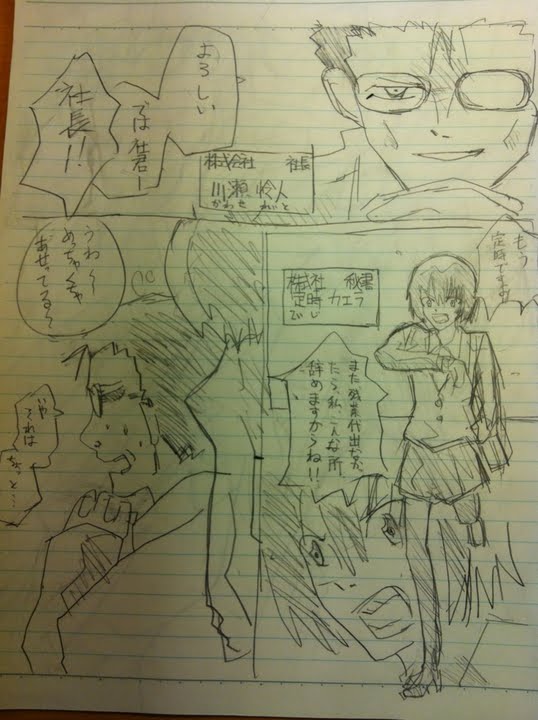 よろしい
では
社長!!
株式会社 社長
川瀬 怜人
かわせ れいと
もう
定時ですよ
秘書
定時
カエラ
また残業代出なかっ
たら私、こんな所、
辞めますからね!!
うわ〜
めちゃくちゃ
あせってる〜
いや
それは
ちょっと…